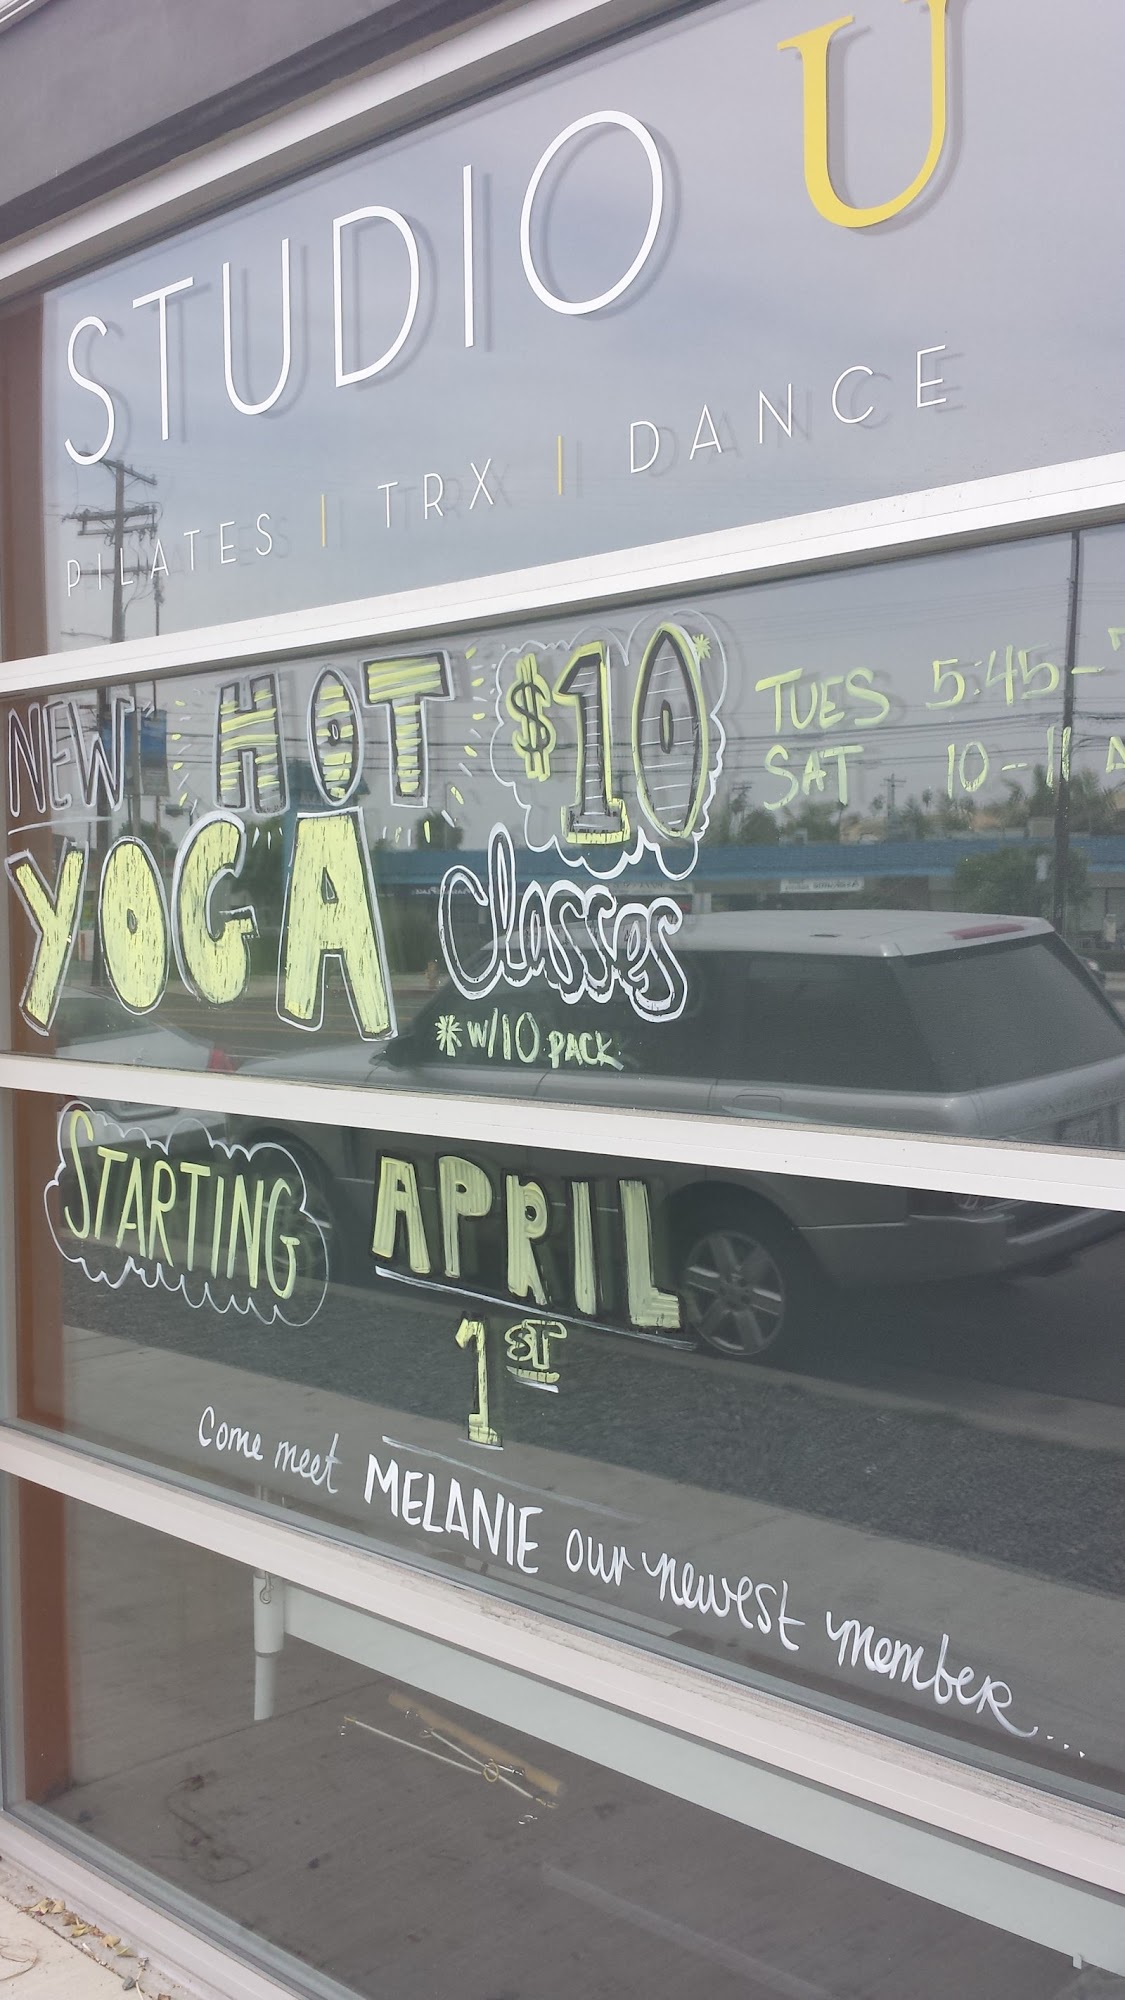 STUDIO U
PILATES | TRX | DANCE
NEW HOT $10*
YOGA classes
* W/10 PACK
TUES 5:45-
SAT 10-11
STARTING APRIL
1ST
Come meet MELANIE our newest member...